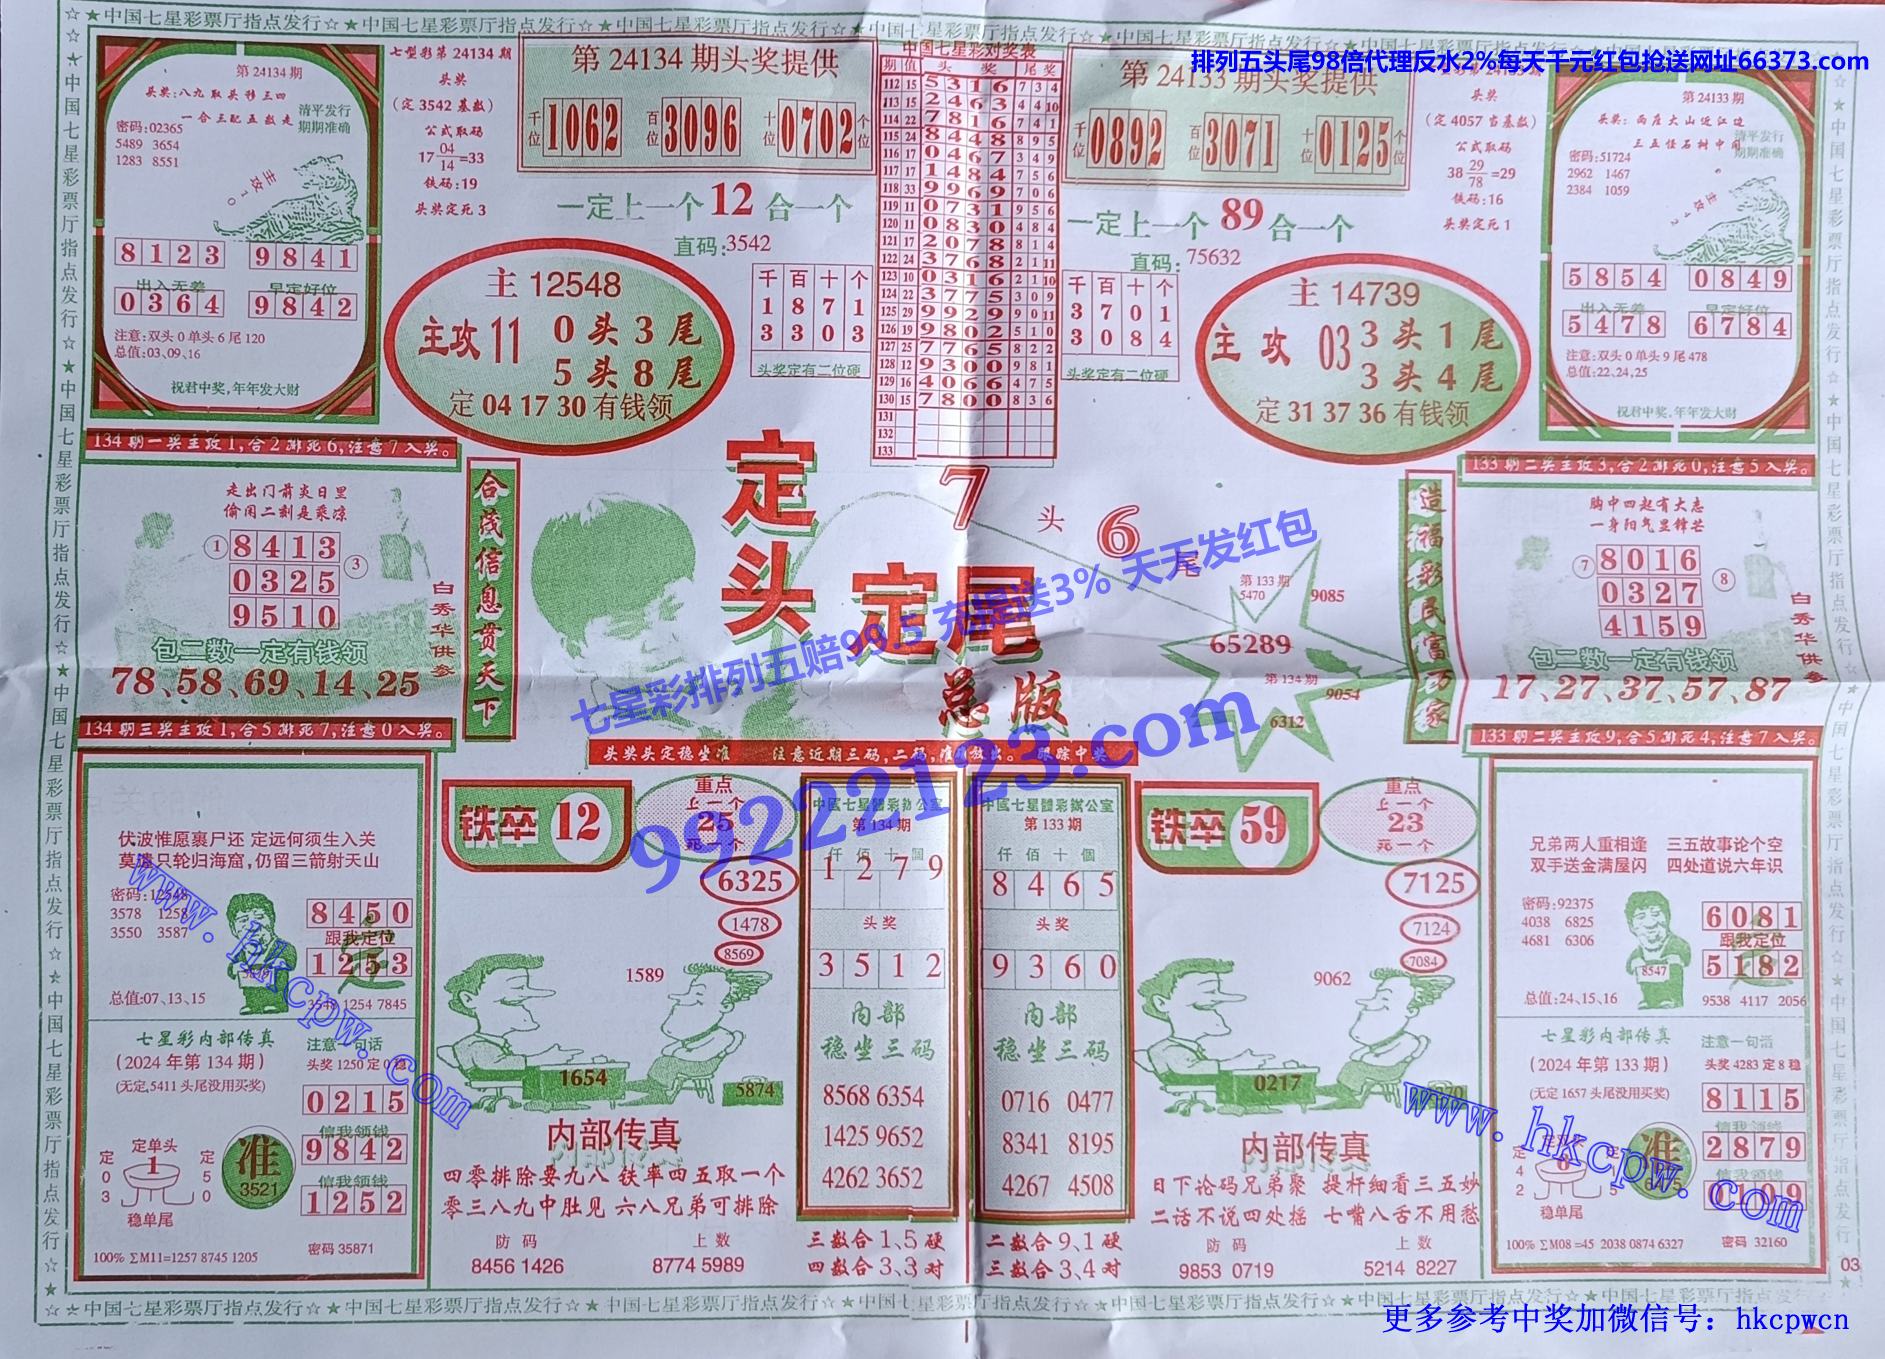 ☆中国七星彩票厅指点发行☆★中国七星彩票厅指点发行☆★中国七星彩票厅指点发行☆★中国七星彩票厅指点发行☆
排列五头尾98倍代理反水2%每天千元红包抢送网址66373.com
第 24134 期
头奖:八九取头移三四
一合三配五数走
清平发行
期期准确
密码:02365
5489 3654
1283 8551
主攻10
8123 9841
出入无差 早定好位
0364 9842
注意:双头 0 单头 6 尾 120
总值:03、09、16
祝君中奖,年年发大财
七型彩第 24134 期
头奖
(定 3542 基数)
公式取码
17 04/14 =33
铁码:19
头奖定死 3
第 24134 期头奖提供
千位 1062 百位 3096 十位 0702 个位
一定上一个 12 合一个
直码:3542
主 12548
主攻 11 0 头 3 尾
5 头 8 尾
定 04 17 30 有钱领
千百十个
1871
3303
头奖定有二位硬
中国七星彩对奖表
期 值 头奖 尾奖
112 15 5316 7 3 4
113 15 2463 4 4 10
114 22 7816 7 4 1
115 24 8448 8 9 5
116 17 0467 3 4 9
117 17 1484 7 5 6
118 33 9969 7 0 6
119 11 0731 9 5 6
120 11 0830 4 8 4
121 17 2078 8 1 4
122 24 3768 2 1 11
123 10 0316 2 1 2
124 22 3775 3 0 9
125 29 9929 9 0 11
126 19 9802 5 1 0
127 25 7765 8 2 2
128 12 9300 9 8 1
129 16 4066 4 7 5
130 15 7800 8 3 6
131
132
133
第 24133 期头奖提供
千位 0892 百位 3071 十位 0125 个位
一定上一个 89 合一个
直码:75632
千百十个
3701
3084
头奖定有二位硬
主 14739
主攻 03 3 头 1 尾
3 头 4 尾
定 31 37 36 有钱领
头奖
(定 4057 当基数)
公式取码
38 29/78 =29
铁码:16
头奖定死 1
第 24133 期
头奖:西在大山近江边
三五怪石树中间
清平发行
期期准确
密码:51724
2962 1467
2384 1059
5854 0849
出入无差 早定好位
5478 6784
注意:双头 0 单头 9 尾 478
总值:22,24,25
祝君中奖,年年发大财
134 期一奖主攻 1,合 2 排死 6,注意 7 入奖。
走出门前炎日里
偷闲二刻是乘凉
① 8413
0325 ③
9510
包二数一定有钱领
78、58、69、14、25
白秀华供参
134 期三奖主攻 1,合 5 排死 7,注意 0 入奖。
合茂信息贯天下
定头
7 头 6 尾
定尾
总版
七星彩排列五赔99.5 充提送3% 天天发红包
99222123.com
第 133 期
5470
9085
65289
第 134 期
9054
6312
头奖头定稳坐准 注意近期三码,二码,准可放出。跟踪中奖
造福彩民富万家
133 期二奖主攻 3,合 2 排死 0,注意 5 入奖。
胸中四起有大志
一身阳气显锋芒
⑦ 8016 ⑧
0327
4159
包二数一定有钱领
17、27、37、57、87
白秀华供参
133 期二奖主攻 9,合 5 排死 4,注意 7 入奖。
伏波惟愿裹尸还 定远何须生入关
莫遣只轮归海窟,仍留三箭射天山
密码:12548
3578 1258
3550 3587
8450
跟我定位
1253
3548 1254 7845
总值:07、13、15
七星彩内部传真
(2024 年第 134 期)
(无定,5411 头尾没用买奖)
注意一句话
头奖 1250 定 0 稳
0215
信我领钱
9842
信我领钱
1252
定单头
定03 1 定50
稳单尾
准
3521
100% ∑M11=1257 8745 1205
密码 35871
www.hkcpw.com
铁卒 12
重点
上一个
25
死一个
6325
1478
8569
1589
1654
5874
内部传真
四零排除要九八 铁率四五取一个
零三八九中肚见 六八兄弟可排除
防码 上数
8456 1426 8774 5989
中國七星體彩辦公室
第 134 期
仟佰十個
1279
头奖
3512
内部
稳坐三码
8568 6354
1425 9652
4262 3652
三数合 1、5 硬
四数合 3、3 对
中國七星體彩辦公室
第 133 期
仟佰十個
8465
头奖
9360
内部
稳坐三码
0716 0477
8341 8195
4267 4508
二数合 9、1 硬
三数合 3、4 对
铁卒 59
重点
上一个
23
死一个
7125
7124
7084
9062
0217
内部传真
日下论码兄弟聚 提杆细看三五妙
二话不说四处摇 七嘴八舌不用愁
防码 上数
9853 0719 5214 8227
兄弟两人重相逢 三五故事论个空
双手送金满屋闪 四处道说六年识
密码:92375
4038 6825
4681 6306
8547
6081
跟我定位
5182
9538 4117 2056
总值:24、15、16
七星彩内部传真
(2024 年第 133 期)
(无定 1657 头尾没用买奖)
注意一句活
头奖 4283 定 8 稳
8115
信我领钱
2879
信我领钱
0109
稳单尾
100% ∑M08=45 2038 0874 6327
密码 32160
www.hkcpw.com
03
☆中国七星彩票厅指点发行☆★中国七星彩票厅指点发行☆★中国七星彩票厅指点发行☆★中国七星彩票厅指点发行☆
更多参考中奖加微信号：hkcpwcn